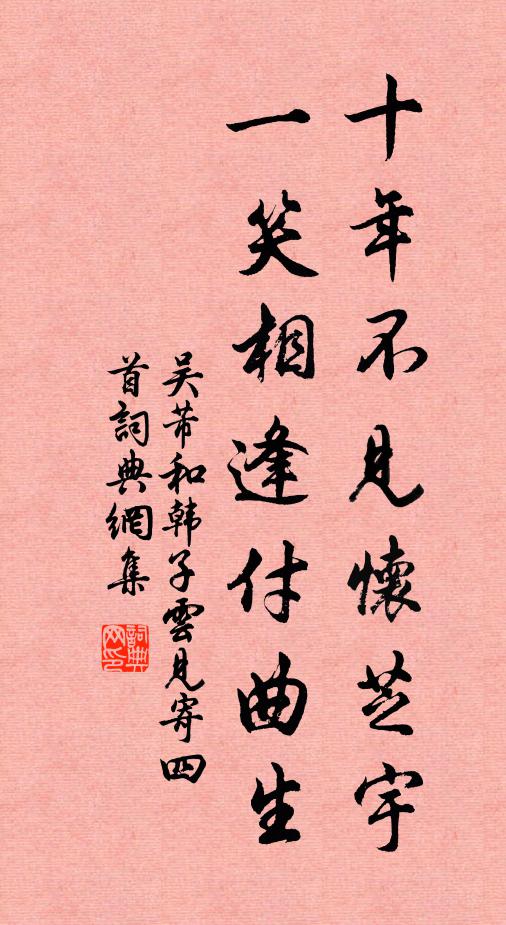 十年不見懷芝宇
一笑相逢付曲生
吴芾和韩子雲見寄四
首詞典網集
詞典
网印